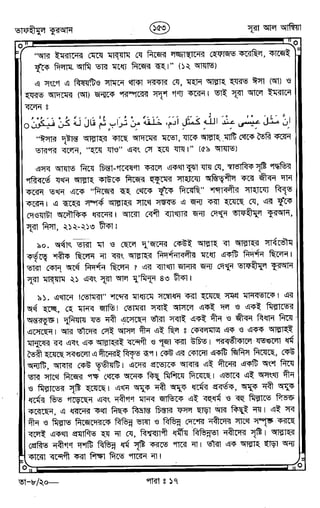 তাফহীমুল কুরআন
১৫৩
সূরা আল আম্বিয়া
"আর ইমরানের মেয়ে মারয়াম যে নিজের লজ্জাস্থানের হেফাজত করেছিল, কাজেই
ফুঁকে দিলাম আমি তার মধ্যে নিজের রূহ।" (১২ আয়াত)
এ সংগে এ বিষয়টিও সামনে থাকা দরকার যে, মহান আল্লাহ হযরত ঈসা (আ) ও
হযরত আদমের (আ) জন্মকে পরস্পরের সদৃশ গণ্য করেন। তাই সূরা আলে ইমরানে
বলেন ঃ
إِنَّ مَثَلَ عِيسَى عِنْدَ اللَّهِ كَمَثَلِ آدَمَ، خَلَقَهُ مِنْ تُرَابٍ ثُمَّ قَالَ لَهُ كُنْ فَيَكُونُ ٥
"ঈসার দৃষ্টান্ত আল্লাহর কাছে আদমের মতো, যাকে আল্লাহ মাটি থেকে তৈরি করেন
তারপর বলেন, "হয়ে যাও" এবং সে হয়ে যায়।" (৫৯ আয়াত)
এসব আয়াত নিয়ে চিন্তা-গবেষণা করলে একথা বুঝা যায় যে, স্বাভাবিক সৃষ্টি পদ্ধতির
পরিবর্তে যখন আল্লাহ কাউকে নিজের হুকুমের সাহায্যে অস্তিত্বশীল করে জীবন দান
করেন তখন একে "নিজের রূহ থেকে ফুঁকে দিয়েছি" শব্দাবলীর সাহায্যে বিবৃত
করেন। এ রূহের সম্পর্ক আল্লাহর সাথে সম্ভবত এ জন্য করা হয়েছে যে, এর ফুঁকে
দেওয়াটা অলৌকিক ধরনের। আরো বেশী ব্যাখ্যার জন্য দেখুন তাফহীমুল কুরআন,
সূরা নিসা, ২১২-২১৩ টীকা।
৯০. অর্থাৎ তারা মা ও ছেলে দু'জনের কেউই আল্লাহ বা আল্লাহর সার্বভৌম
কর্তৃত্বে শরীক ছিলেন না বরং আল্লাহর নিদর্শনাবলীর মধ্যে একটি নিদর্শন ছিলেন।
তারা কোন্ অর্থে নিদর্শন ছিলেন ? এর ব্যাখ্যা জানার জন্য দেখুন তাফহীমুল কুরআন,
সূরা মারয়াম ২১ এবং সূরা আল মু'মিনূন ৪৩ টীকা।
৯১. এখানে "তোমরা" শব্দের মাধ্যমে সম্বোধন করা হয়েছে সমগ্র মানবতাকে। এর
অর্থ হচ্ছে, হে মানব জাতি! তোমরা সবাই আসলে একই দল ও একই মিল্লাতের
অন্তরভুক্ত। দুনিয়ায় যত নবী এসেছেন তাঁরা সবাই একই দীন ও জীবন বিধান নিয়ে
এসেছেন। আর তাঁদের সেই আসল দীন এই ছিল ঃ কেবলমাত্র এক ও একক আল্লাহই
মানুষের রব এবং এক আল্লাহরই বন্দেগী ও পূজা করা উচিত। পরবর্তীকালে যতগুলো ধর্ম
তৈরী হয়েছে সবগুলো এ দীনেরই বিকৃত রূপ। কেউ এর কোনো একটি জিনিস নিয়েছে, কেউ
অন্যটি, আবার কেউ তৃতীয়টি। এদের প্রত্যেকে আবার এই দীনের একটি অংশ নিয়ে
তার সাথে নিজের পক্ষ থেকে অনেক কিছু মিশিয়ে দিয়েছে। এভাবে এই অসংখ্য দীন
ও মিল্লাতের সৃষ্টি হয়েছে। এখন অমুক নবী অমুক ধর্মের প্রবর্তক, অমুক নবী অমুক
ধর্মের ভিত গড়েছেন এবং নবীগণ মানব জাতিকে এই বহুধর্ম ও বহু মিল্লাতে বিভক্ত
করেছেন, এ ধরনের কথা নিছক বিভ্রান্ত চিন্তার ফসল ছাড়া আর কিছুই নয়। এই সব
দীন ও মিল্লাত নিজেদেরকে বিভিন্ন ভাষা ও বিভিন্ন দেশের নবীদের সাথে সম্পৃক্ত করছে
বলেই একথা প্রমাণিত হয় না যে, বিশ্বব্যাপী ধর্মীয় বিভিন্নতা নবীদের সৃষ্টি। আল্লাহর
প্রেরিত নবীগণ দশটি বিভিন্ন ধর্ম সৃষ্টি করতে পারেন না। তাঁরা এক আল্লাহ ছাড়া অন্য
কারো বন্দেগী করা শিক্ষা দিতে পারেন না।
তা-৮/২০—
পারা ঃ ১৭